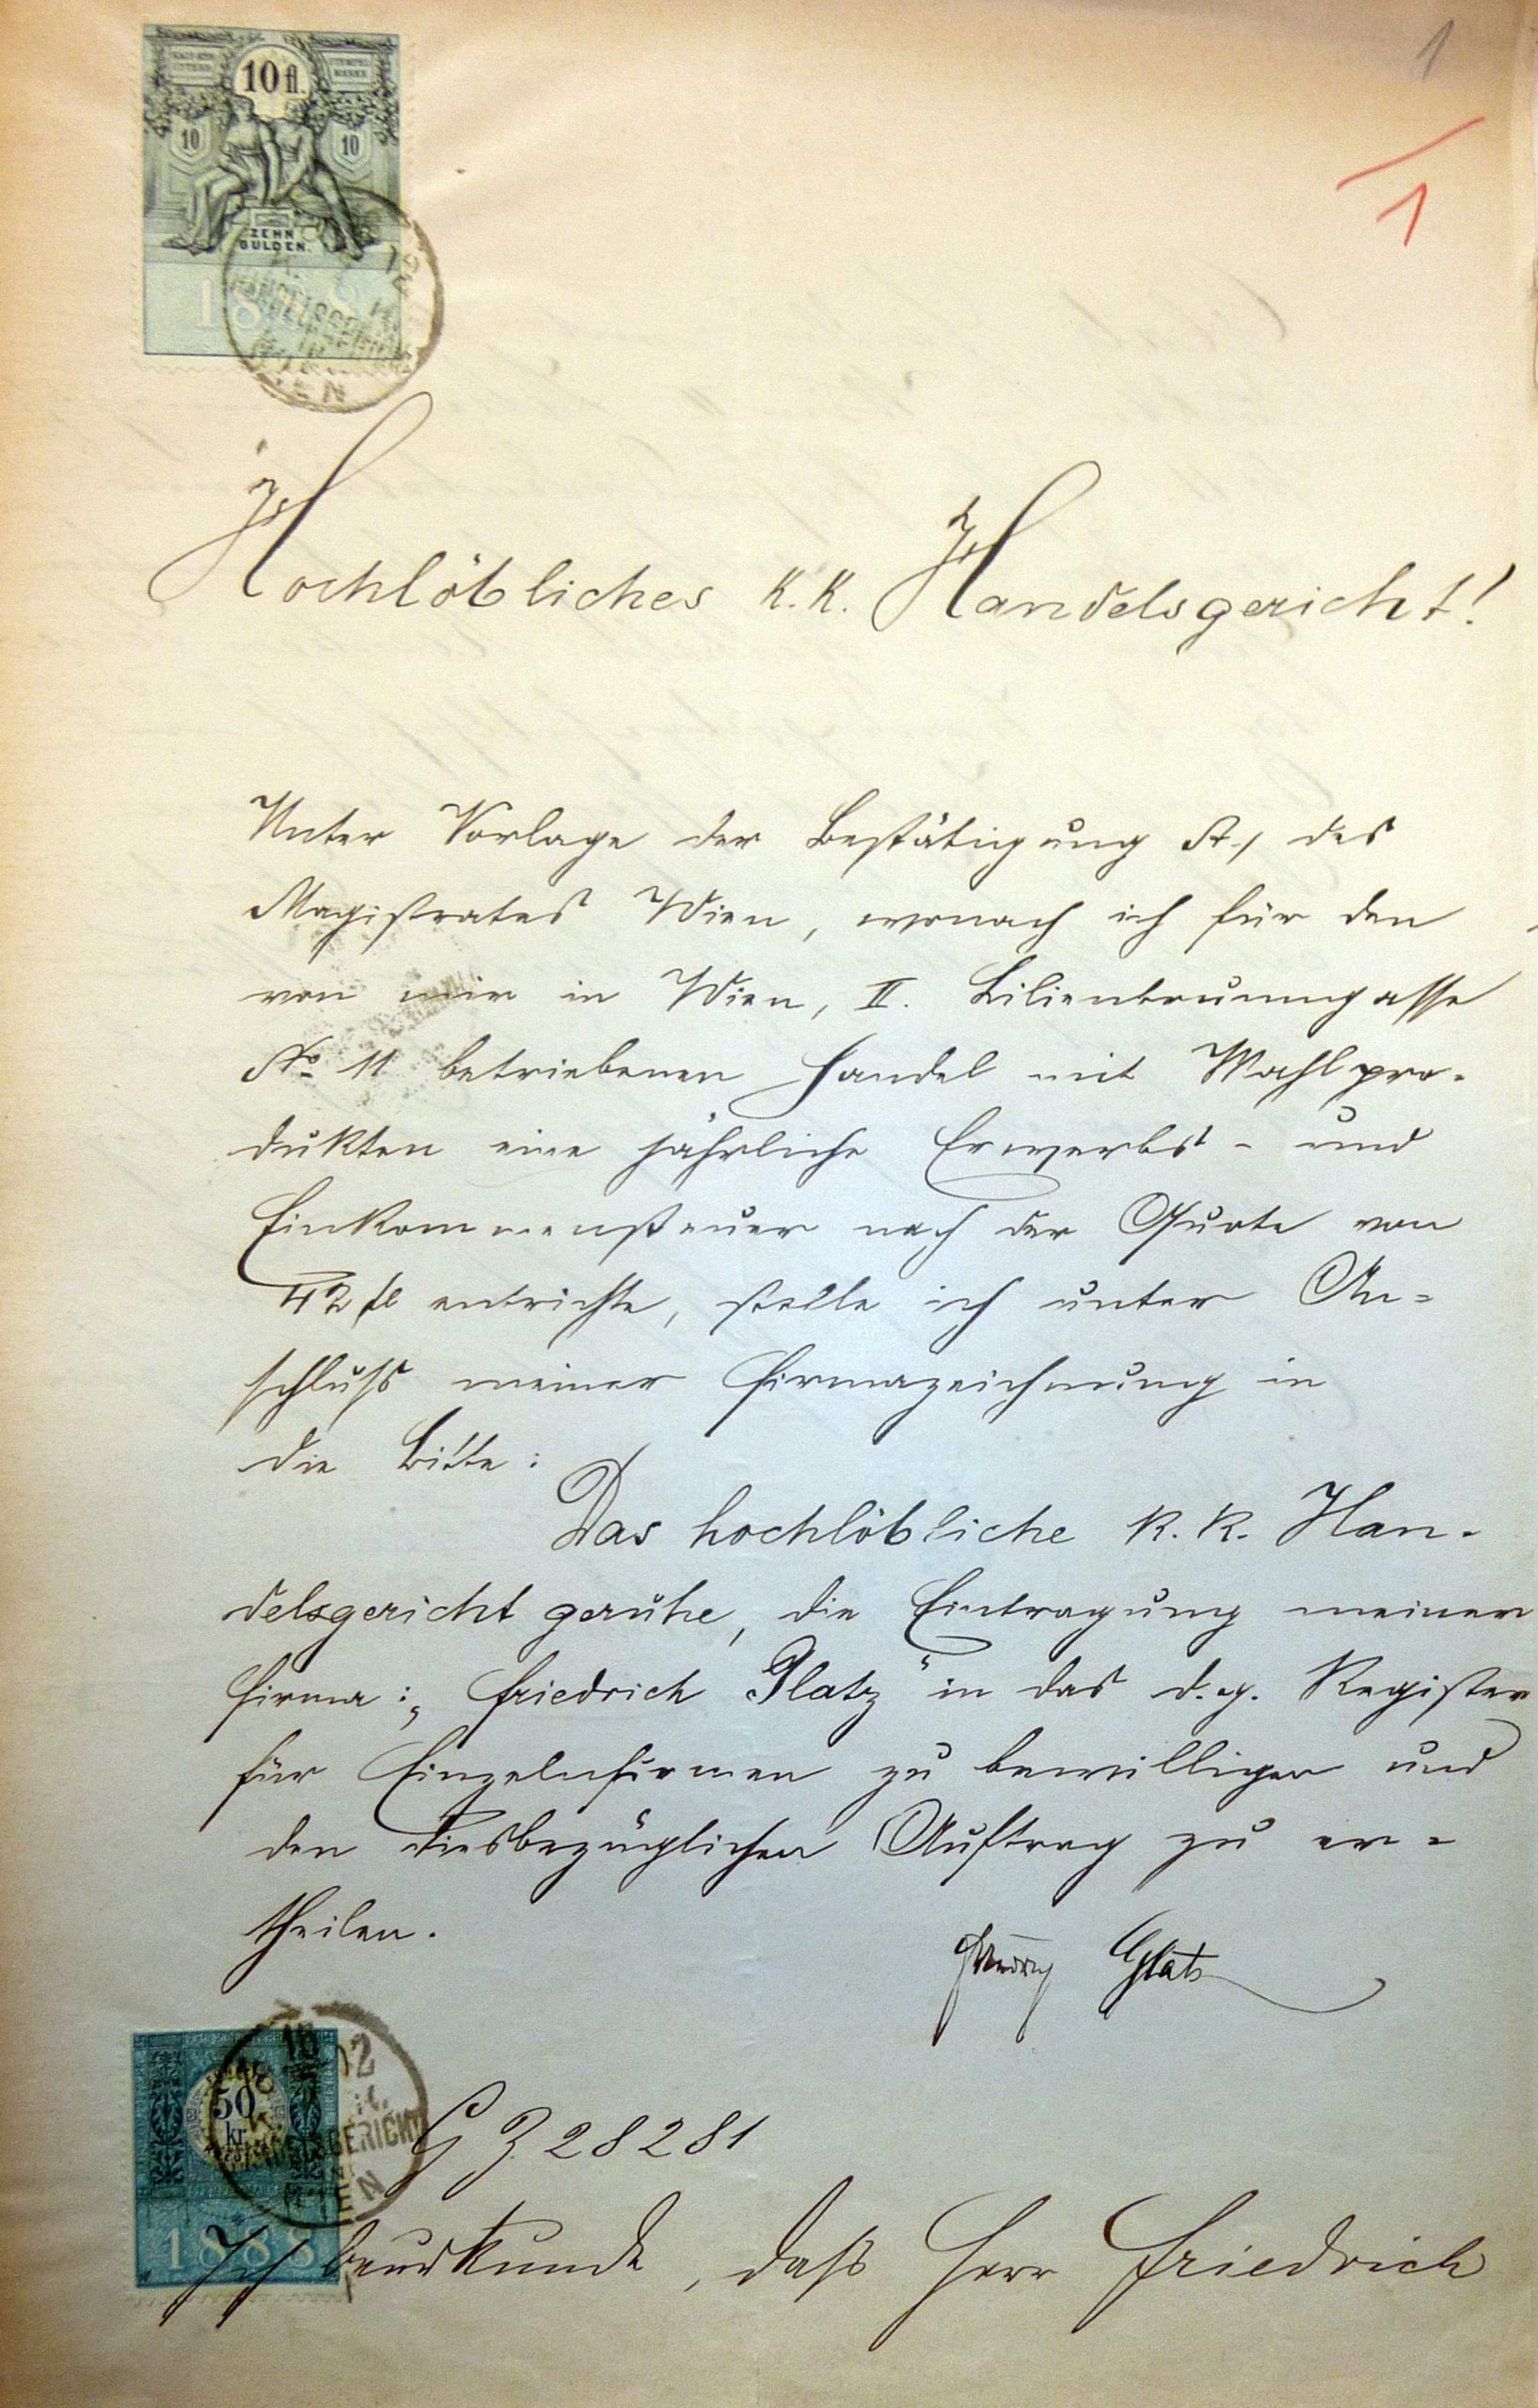 1
10 fl.
10 10
ZEHN
GULDEN.
1
Hochlöbliches k.k. Handelsgericht!
Unter Vorlage der Bestätigung A./ des
Magistrates Wien, wonach ich für den
von mir in Wien, II. Lilienbrunngasse
No 11 betriebenen Handel mit Mahlpro-
dukten eine jährliche Erwerbst- und
Einkommensteuer nach der Quote von
42 fl entrichte, stelle ich unter An-
schluß meiner Firmazeichnung in
die Bitte:
Das hochlöbliche k.k. Han-
delsgericht geruhe, die Eintragung meiner
Firma: „Friedrich Glatz" in das d.g. Register
für Einzelnfirmen zu bewilligen und
den diesbezüglichen Auftrag zu er-
theilen.
Friedrich Glatz
50
kr.
WIEN
G Z 28281
1888
Ich beurkunde, daß Herr Friedrich